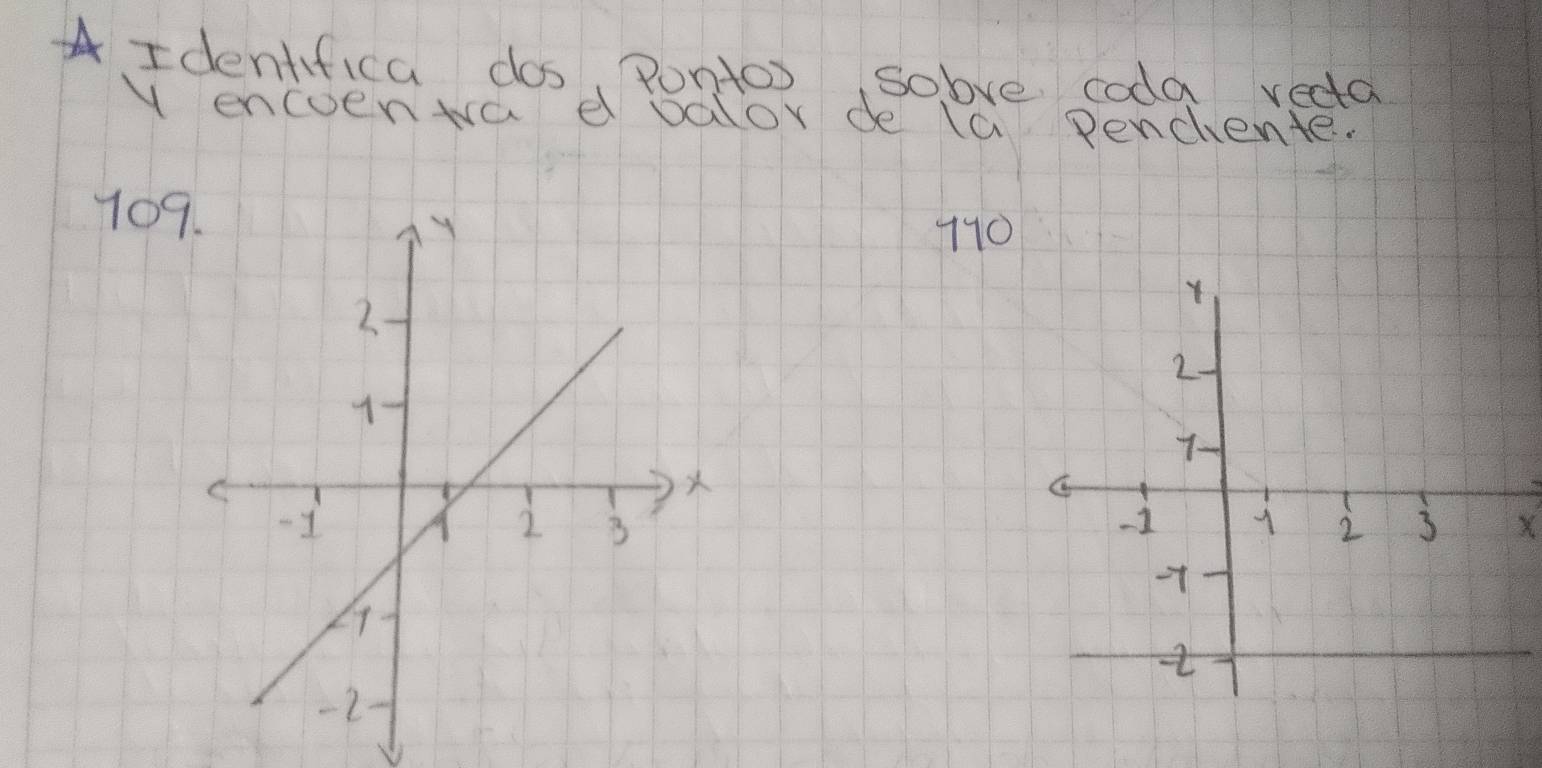 A Identifica dos Pontos sobre cada recta
Y encoentra el valor de la Pendiente.
109.
110
Y
2
1
-1
1
2
3
X
-1
-2
Y
2
1
-1
1
2
3
X
-1
-2